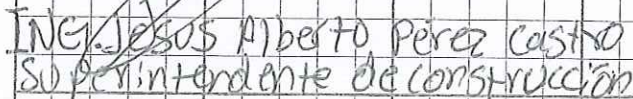 ING. Jesus Alberto Perez Castro
Superintendente de construcción